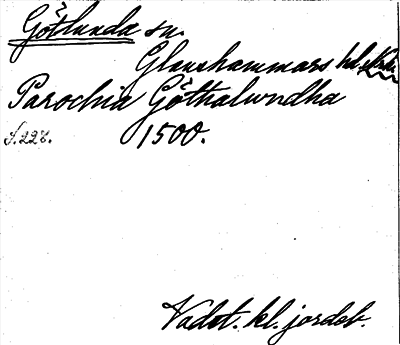 Götlunda sn.
Glanshammars hd. Nrk.
Parochia Göthalwndha
S. 228. 1500.
Vadst. kl. jordeb.